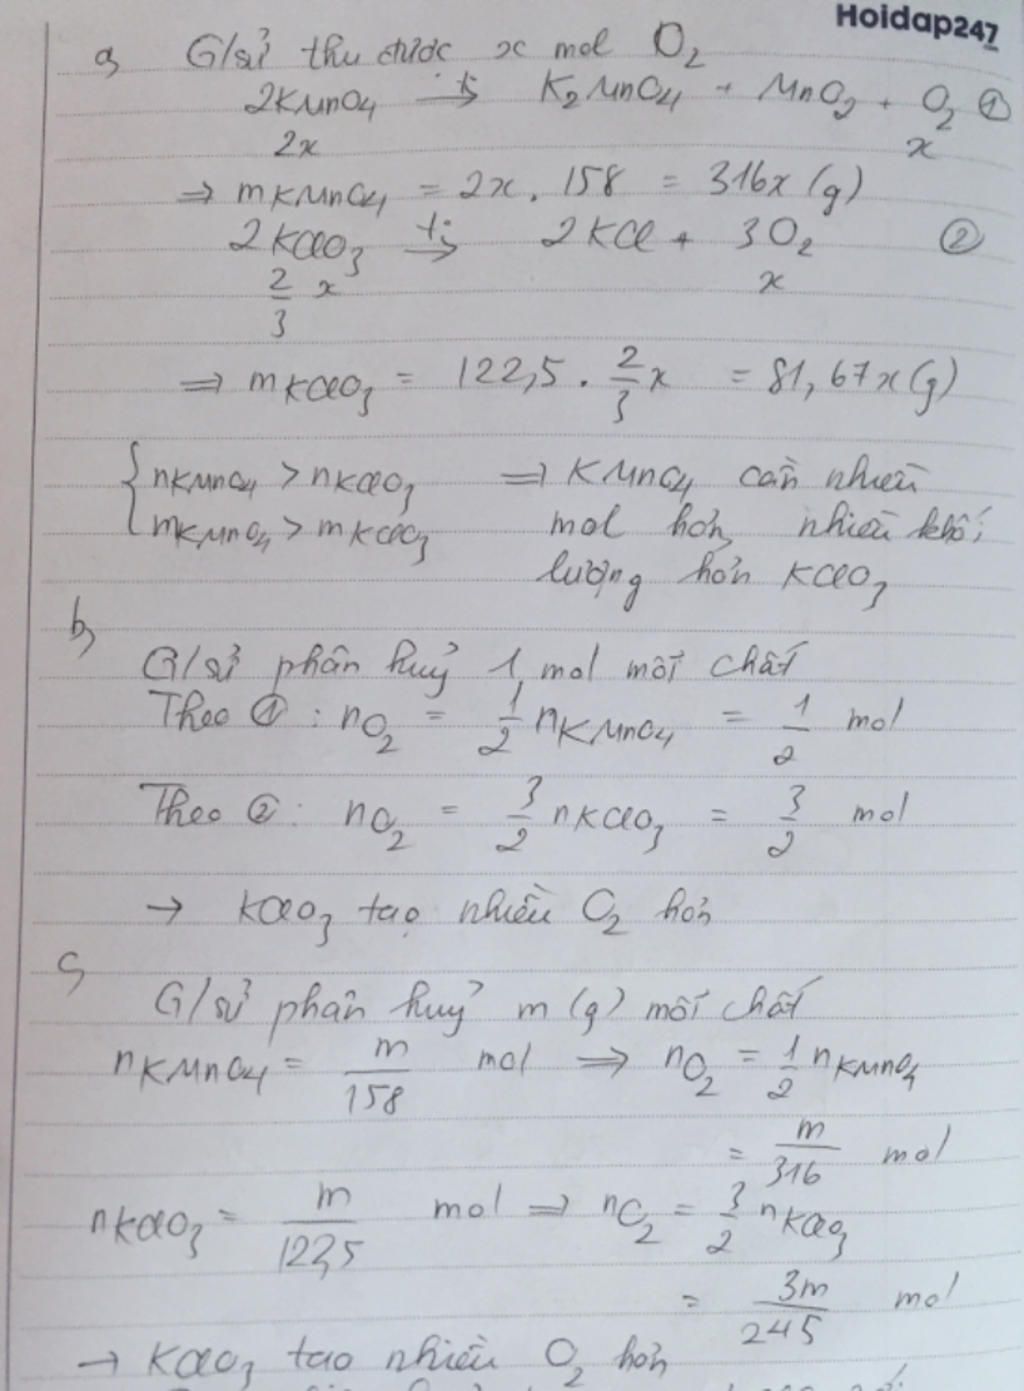 Hoidap247
a, G/sử thu được x mol O₂
2KMnO₄ →t° K₂MnO₄ + MnO₂ + O₂ ①
2x x
⇒ mKMnO₄ = 2x . 158 = 316x (g)
2KClO₃ →t° 2KCl + 3O₂ ②
2/3 x x
⇒ mKClO₃ = 122,5 . 2/3 x = 81,67x (g)
{ nKMnO₄ > nKClO₃ ⇒ KMnO₄ cần nhiều
mKMnO₄ > mKClO₃ mol hơn, nhiều khối
lượng hơn KClO₃
b,
G/sử phân huỷ 1 mol mỗi chất
Theo ① : nO₂ = 1/2 nKMnO₄ = 1/2 mol
Theo ② : nO₂ = 3/2 nKClO₃ = 3/2 mol
→ KClO₃ tạo nhiều O₂ hơn
c,
G/sử phân huỷ m (g) mỗi chất
nKMnO₄ = m/158 mol ⇒ nO₂ = 1/2 nKMnO₄
= m/316 mol
nKClO₃ = m/122,5 mol ⇒ nO₂ = 3/2 nKClO₃
= 3m/245 mol
→ KClO₃ tạo nhiều O₂ hơn